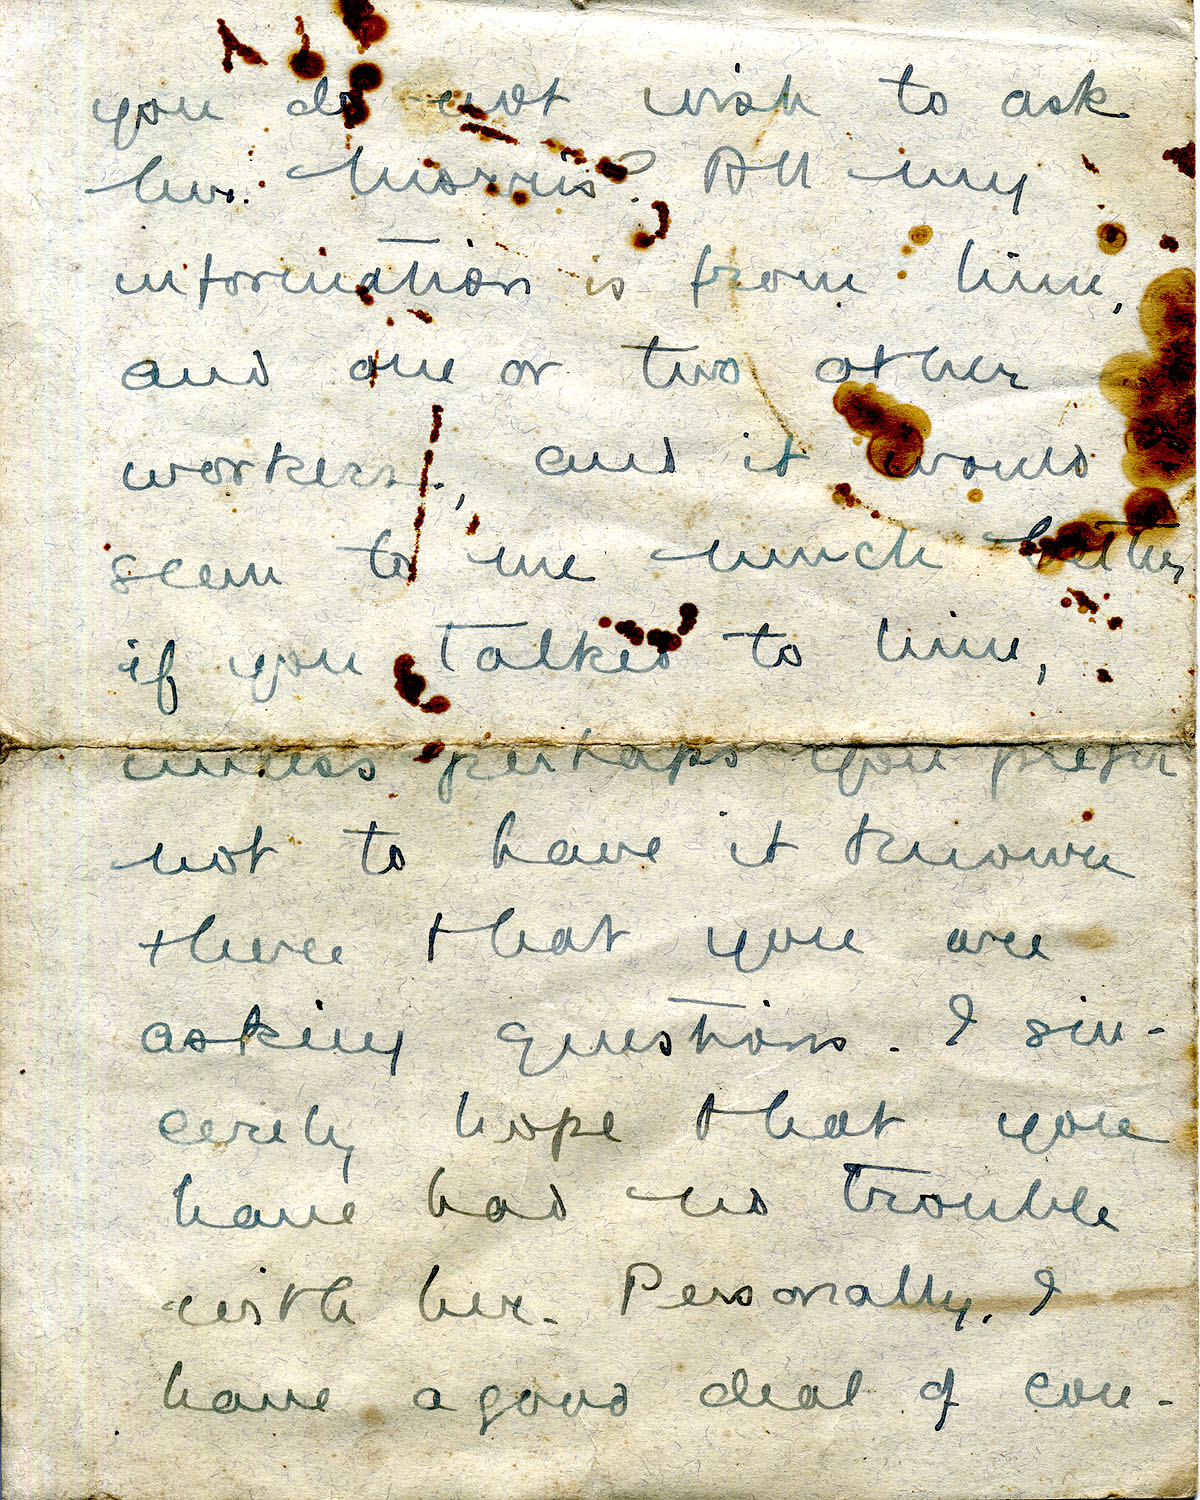 you do not wish to ask
Mr. Morris? All my
information is from him,
and one or two other
workers, and it would
seem to me much better
if you talked to him,
unless perhaps you prefer
not to have it known
there that you are
asking questions. I sin-
cerely hope that you
have had no trouble
with her. Personally, I
have a good deal of con-